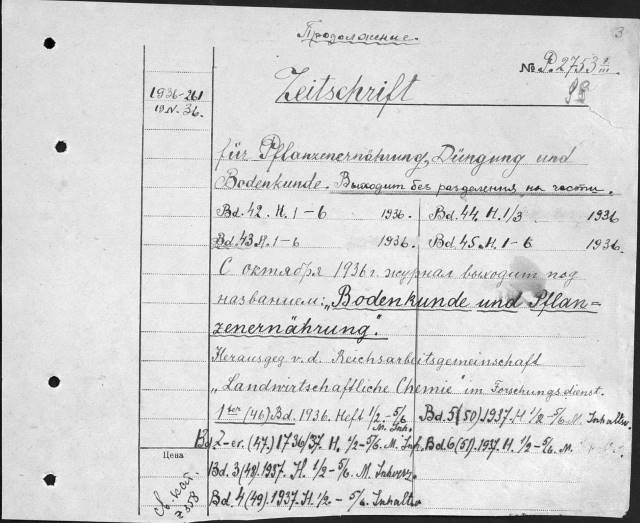 Продолжение.
3
№ P.2753 2/III
Zeitschrift
1936-261
19.IV.36.
für Pflanzenernährung, Düngung und
Bodenkunde. Выходит без разделения на части.
Bd. 42. H. 1-6 1936. Bd. 44. H. 1/3 1936
Bd. 43. H. 1-6 1936. Bd. 45. H. 1-6 1936.
С октября 1936 г. журнал выходит под
названием: „Bodenkunde und Pflan=
zenernährung".
Herausgeg. v. d. Reichsarbeitsgemeinschaft
„Landwirtschaftliche Chemie" im Forschungsdienst.
1ter (46) Bd. 1936. Heft 1/2 - 5/6 M. Inh. Bd. 5 (50) 1937. H 1/2 - 5/6 M. Inhaltsv.
Bd 2-er. (47.) 1736/37. H. 1/2 - 5/6. M. Inh. Bd. 6 (51). 1937. H. 1/2 - 5/6. M.
Цена
Bd. 3 (48). 1937. H. 1/2 - 5/6. M.
Bd. 4 (49). 1937. H. 1/2 - 5/6. Inhaltsv
См. кат.
2358